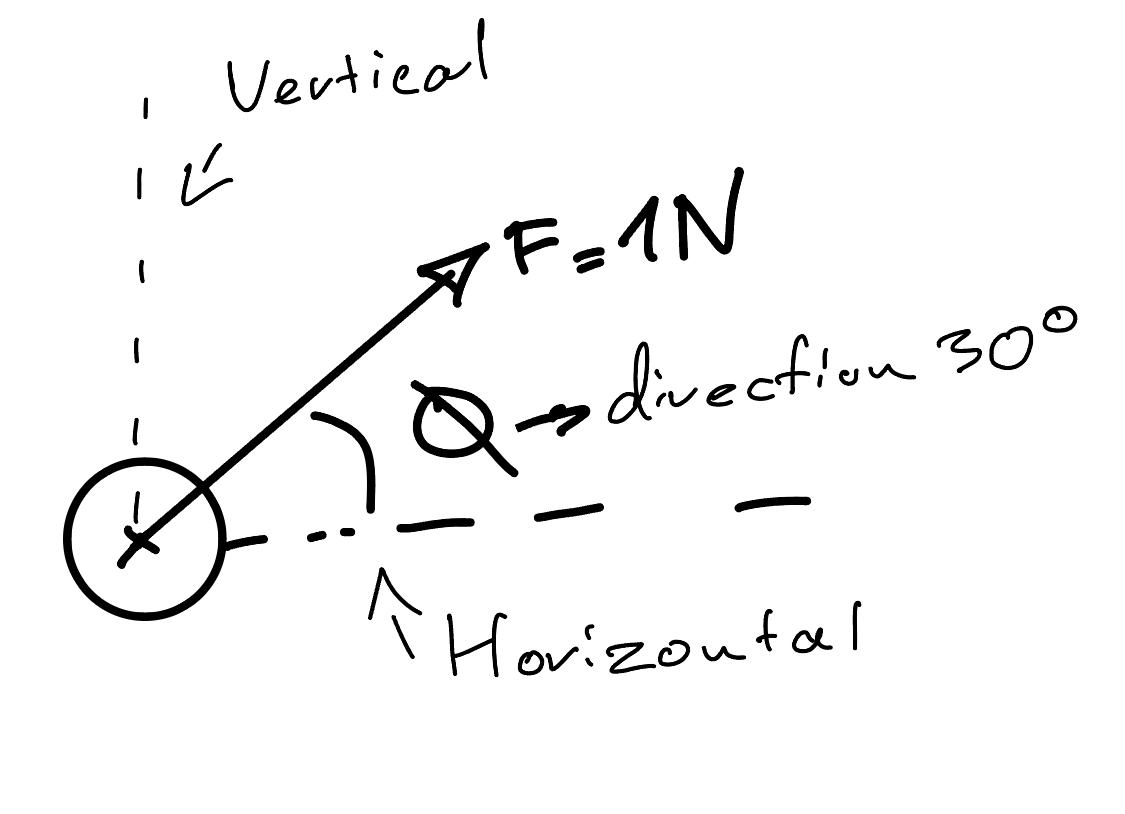 Vertical
F=1N
Ø → direction 30°
Horizontal